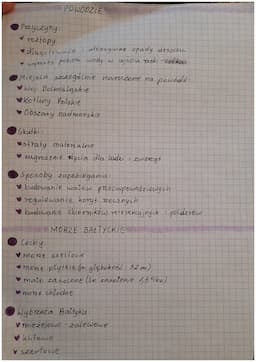 POWODZIE
Przyczyny:
roztopy
długotrwałe intensywne opady deszczu
wysoki poziom wody w ujściu rzeki
Miejsca szczególnie narażone na powódź
woj. Dolnośląskie
Kotliny Polskie
Obszary nadmorskie
Skutki:
straty materialne
zagrożenie życia dla ludzi i zwierząt
Sposoby zapobiegania:
budowanie wałów przeciwpowodziowych
regulowanie koryt rzecznych
budowanie zbiorników retencyjnych i polderów
MORZE BAŁTYCKIE
Cechy:
morze
morze płytkie (śr. głębokość 52 m)
mało zasolone (śr. zasolenie
morze chłodne
Wybrzeża Bałtyku
mierzejowo - zalewowe
klifowe
szkierowe